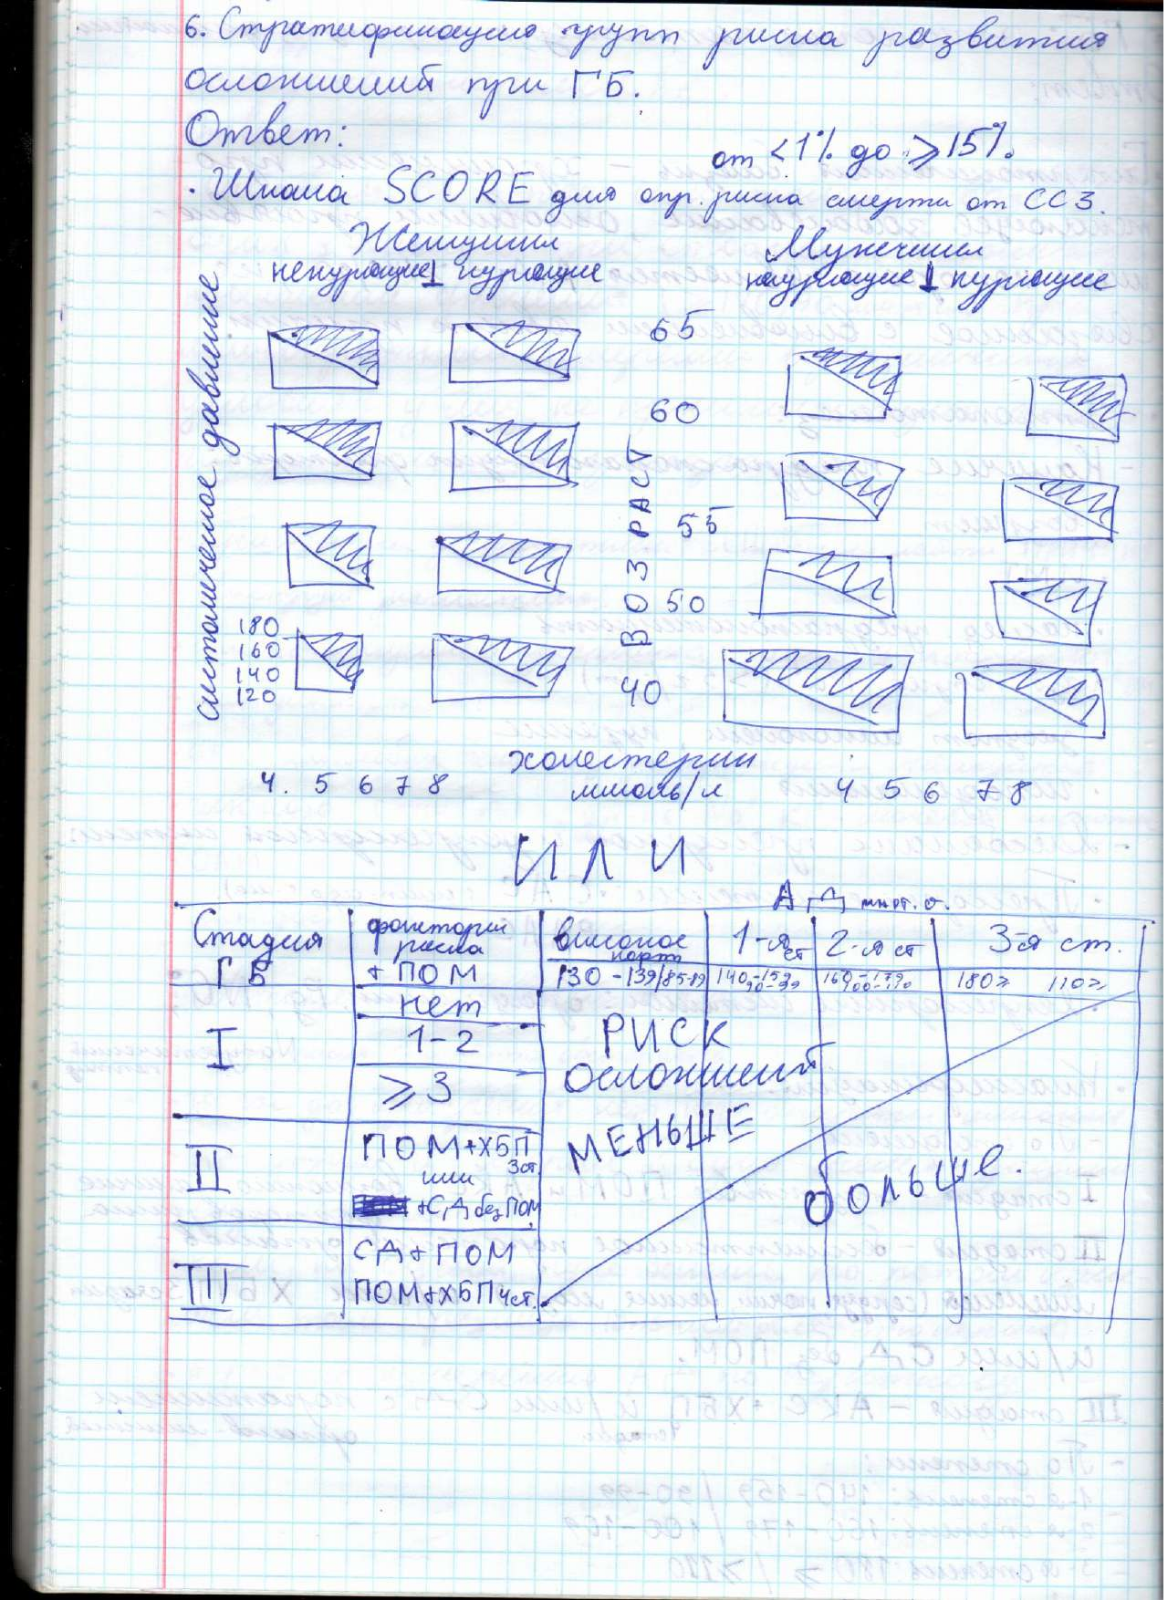 6. Стратификация групп риска развития
осложнений при ГБ.
Ответ:
от <1% до ⩾15%.
· Шкала SCORE для опр. риска смерти от ССЗ.
Женщины
Мужчины
некурящие курящие
некурящие курящие
систолическое давление
ВОЗРАСТ
65
60
55
50
40
180
160
140
120
холестерин
4. 5 6 7 8
ммоль/л
4 5 6 7 8
ИЛИ
АД мм рт. с.
Стадия ГБ
факторы риска + ПОМ
высокое норм
1-я ст
2-я ст
3-я ст.
130-139/85-89
140-159 90-99
160-179
180⩾ 110⩾
нет
I
1-2
⩾3
РИСК
осложнений
МЕНЬШЕ
больше.
II
ПОМ+ХБП 3ст
или
+СД без ПОМ
III
СД+ПОМ
ПОМ+ХБП 4ст.